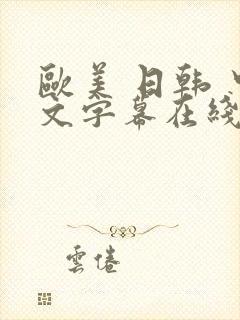 歐美 日韩 中
文字幕在綫
雲倦